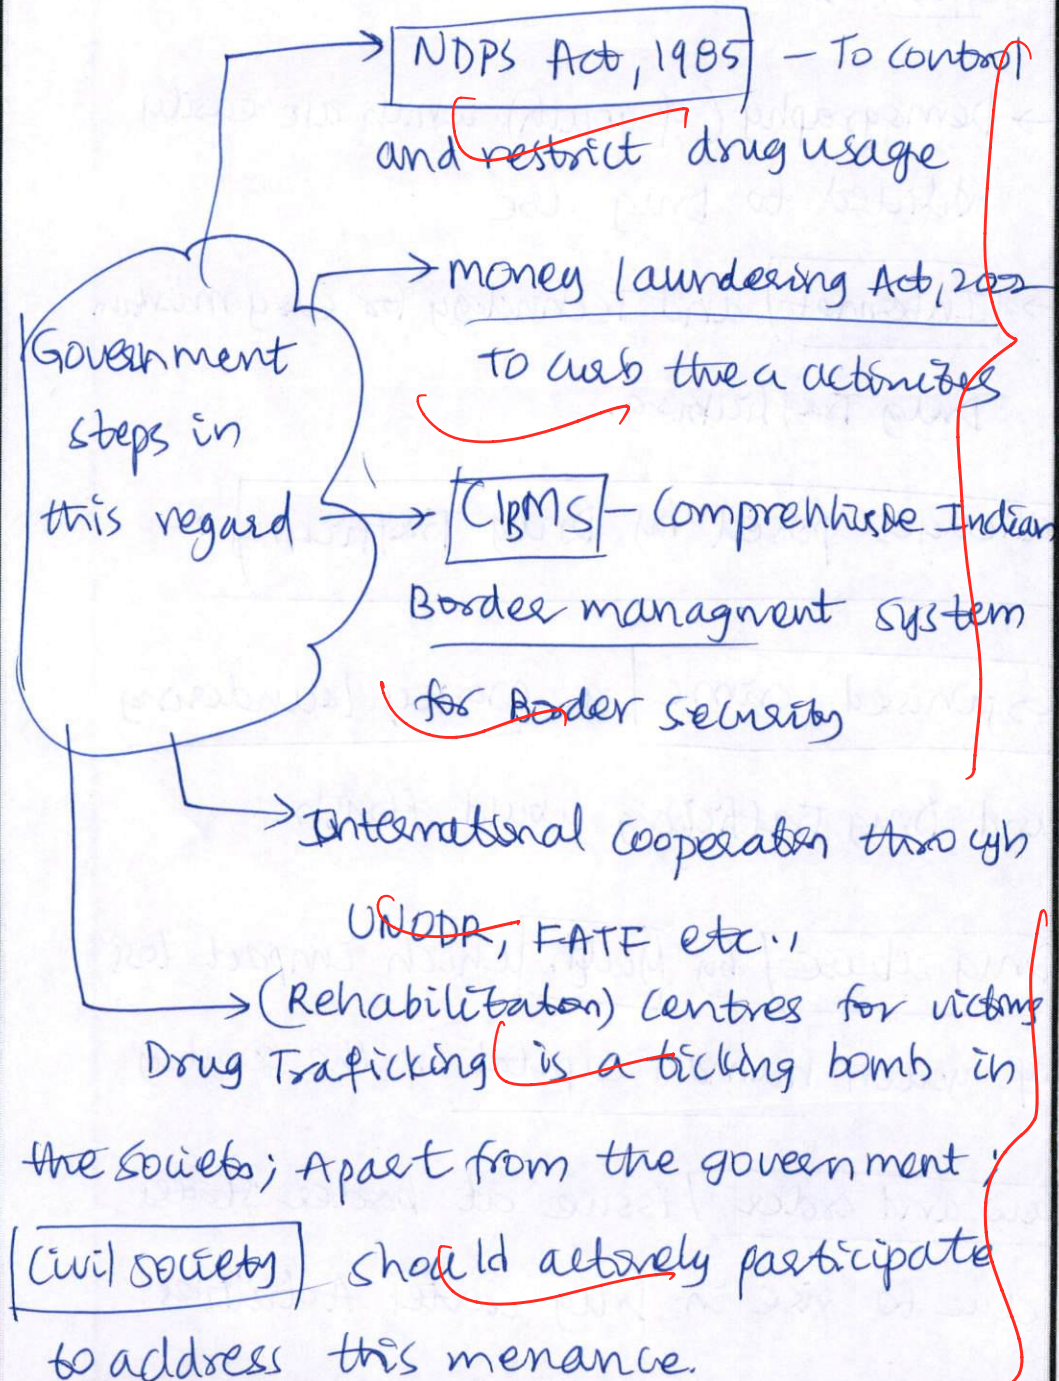 NDPS Act, 1985 - To control
and restrict drug usage
Money laundering Act, 2002
To curb the a activities
Government
steps in
this regard
CIBMS - Comprehhisde Indian
Border managment system
for Border security
International cooperation through
UNODR, FATF etc.,
(Rehabilitaton) centres for victims
Drug Traficking is a ticking bomb in
the society; Apart from the government;
Civil society should actively participate
to address this menance.